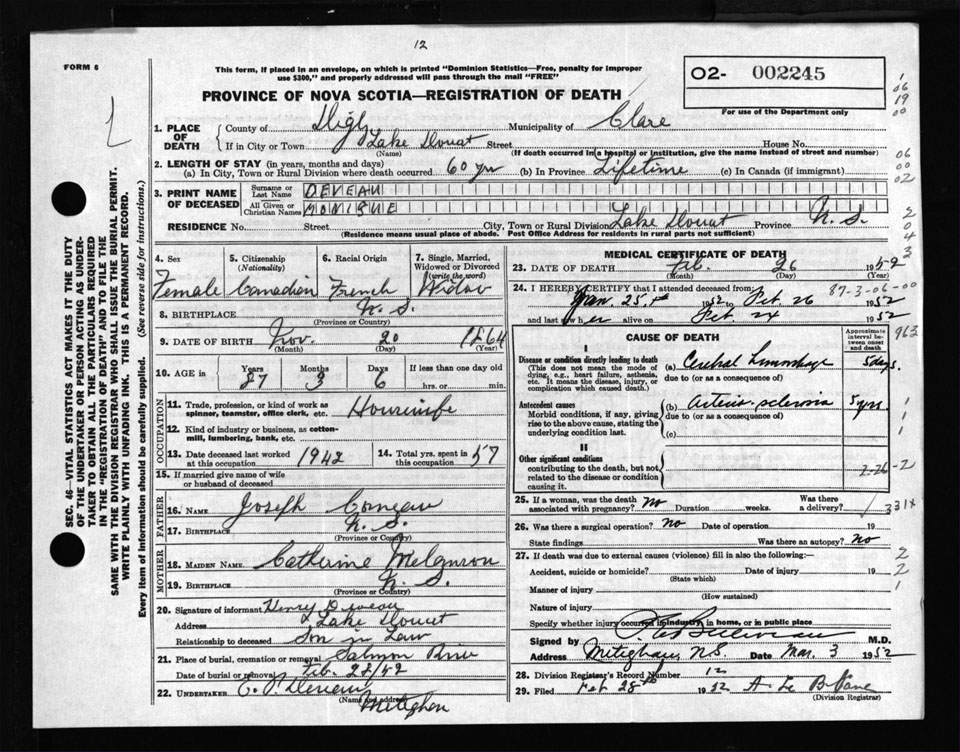 12
FORM 6
This form, if placed in an envelope, on which is printed "Dominion Statistics—Free, penalty for improper
use $300," and properly addressed will pass through the mail "FREE"
O2- 002245
For use of the Department only
PROVINCE OF NOVA SCOTIA—REGISTRATION OF DEATH
1. PLACE OF DEATH
County of Digby Municipality of Clare
If in City or Town Lake Doucet Street House No.
(Name) (If death occurred in a hospital or institution, give the name instead of street and number)
2. LENGTH OF STAY (in years, months and days)
(a) In City, Town or Rural Division where death occurred 60 yrs (b) In Province Lifetime (c) In Canada (if immigrant)
3. PRINT NAME OF DECEASED
Surname or Last Name DEVEAU
All Given or Christian Names MONIQUE
RESIDENCE No. Street City, Town or Rural Division Lake Doucet Province N.S.
(Residence means usual place of abode. Post Office Address for residents in rural parts not sufficient)
4. Sex Female
5. Citizenship (Nationality) Canadian
6. Racial Origin French
7. Single, Married, Widowed or Divorced (write the word) Widow
8. BIRTHPLACE N.S.
(Province or Country)
9. DATE OF BIRTH Nov. 20 1864
(Month) (Day) (Year)
10. AGE in Years 87 Months 3 Days 6 If less than one day old
hrs. or min.
OCCUPATION
11. Trade, profession, or kind of work as spinner, teamster, office clerk, etc. Housewife
12. Kind of industry or business, as cotton-mill, lumbering, bank, etc.
13. Date deceased last worked at this occupation 1942
14. Total yrs. spent in this occupation 57
15. If married give name of wife or husband of deceased
FATHER
16. NAME Joseph Comeau
17. BIRTHPLACE N.S.
(Province or Country)
MOTHER
18. MAIDEN NAME Catherine Melanson
19. BIRTHPLACE N.S.
(Province or Country)
20. Signature of informant Henry Deveau
Address Lake Doucet
Relationship to deceased Son in Law
21. Place of burial, cremation or removal Salmon River
Date of burial or removal Feb. 28/52
22. UNDERTAKER Deveau
(Name and address) Meteghan
MEDICAL CERTIFICATE OF DEATH
23. DATE OF DEATH Feb. 26 1952
(Month) (Day) (Year)
24. I HEREBY CERTIFY that I attended deceased from:
Jan. 25th 1952 to Feb. 26 1952
and last saw her alive on Feb. 24 1952
87-3-06-00
CAUSE OF DEATH
Approximate interval between onset and death
I
Disease or condition directly leading to death
(This does not mean the mode of dying, e.g., heart failure, asthenia, etc. It means the disease, injury, or complication which caused death.)
(a) Cerebral Hemorrhage 5 days.
due to (or as a consequence of)
Antecedent causes
Morbid conditions, if any, giving rise to the above cause, stating the underlying condition last.
(b) Arterio-sclerosis 5 yrs.
due to (or as a consequence of)
(c)
II
Other significant conditions
contributing to the death, but not related to the disease or condition causing it.
2-26-2
25. If a woman, was the death associated with pregnancy? No Duration weeks. Was there a delivery?
26. Was there a surgical operation? No Date of operation 19
State findings Was there an autopsy? No
27. If death was due to external causes (violence) fill in also the following:—
Accident, suicide or homicide? Date of injury 19
(State which)
Manner of injury
(How sustained)
Nature of injury
Specify whether injury occurred in industry, in home, or in public place
Signed by M.D.
Address Meteghan, N.S. Date Mar. 3 1952
28. Division Registrar's Record Number 12
29. Filed Feb 28th 1952 A. Le Blanc
(Division Registrar)
SEC. 46—VITAL STATISTICS ACT MAKES IT THE DUTY
OF THE UNDERTAKER OR PERSON ACTING AS UNDER-
TAKER TO OBTAIN ALL THE PARTICULARS REQUIRED
IN THE "REGISTRATION OF DEATH" AND TO FILE THE
SAME WITH THE DIVISION REGISTRAR WHO SHALL ISSUE THE BURIAL PERMIT.
WRITE PLAINLY WITH UNFADING INK. THIS IS A PERMANENT RECORD.
Every item of information should be carefully supplied. (See reverse side for instructions.)
1
06
19
00
06
00
02
2
0
4
3
963
1
1
1
331X
2
2
1